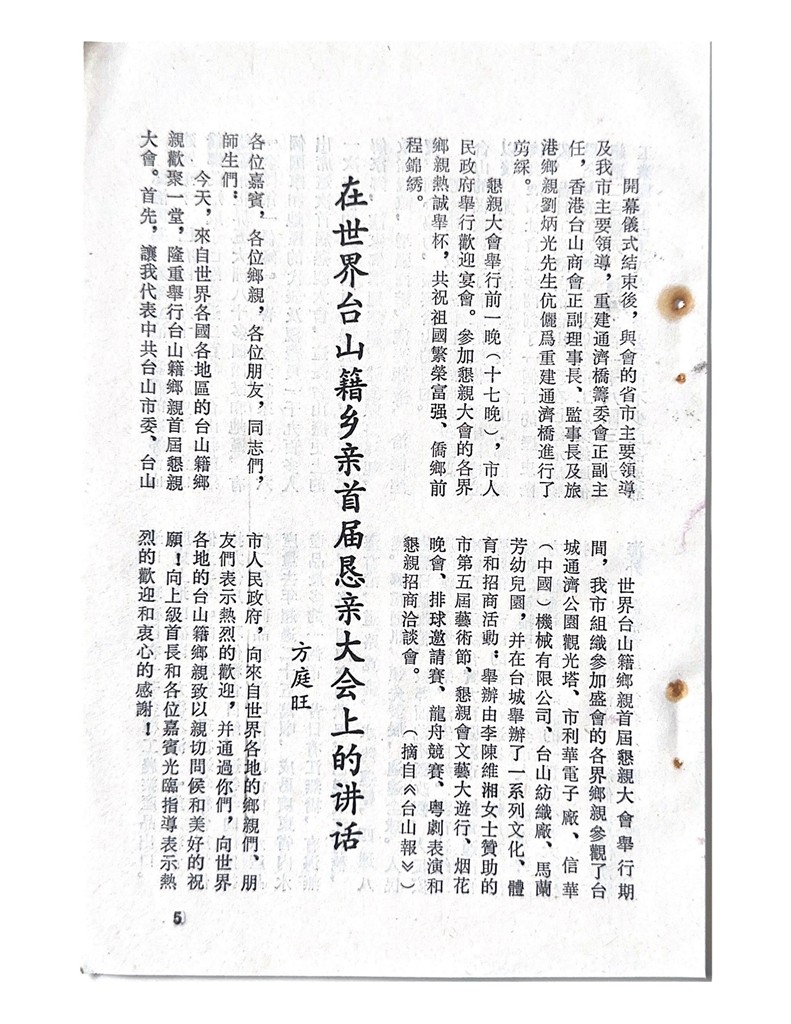 開幕儀式結束後，與會的省市主要領導
及我市主要領導，重建通濟橋籌委會正副主
任，香港台山商會正副理事長、監事長及旅
港鄉親劉炳光先生伉儷爲重建通濟橋進行了
剪綵。
懇親大會舉行前一晚（十七晚），市人
民政府舉行歡迎宴會。參加懇親大會的各界
鄉親熱誠舉杯，共祝祖國繁榮富强、僑鄉前
程錦綉。
世界台山籍鄉親首屆懇親大會舉行期
間，我市組織參加盛會的各界鄉親參觀了台
城通濟公園觀光塔、市利華電子廠、信華
（中國）機械有限公司、台山紡織廠、馬蘭
芳幼兒園，并在台城舉辦了一系列文化、體
育和招商活動：舉辦由李陳維湘女士贊助的
市第五屆藝術節、懇親會文藝大遊行、烟花
晚會、排球邀請賽、龍舟競賽、粵劇表演和
懇親招商洽談會。 （摘自《台山報》）
在世界台山籍乡亲首届恳亲大会上的讲话
方庭旺
各位嘉賓，各位鄉親，各位朋友，同志們，
師生們：
今天，來自世界各國各地區的台山籍鄉
親歡聚一堂，隆重舉行台山籍鄉親首屆懇親
大會。首先，讓我代表中共台山市委、台山
市人民政府，向來自世界各地的鄉親們、朋
友們表示熱烈的歡迎，并通過你們，向世界
各地的台山籍鄉親致以親切問候和美好的祝
願！向上級首長和各位嘉賓光臨指導表示熱
烈的歡迎和衷心的感謝！
5